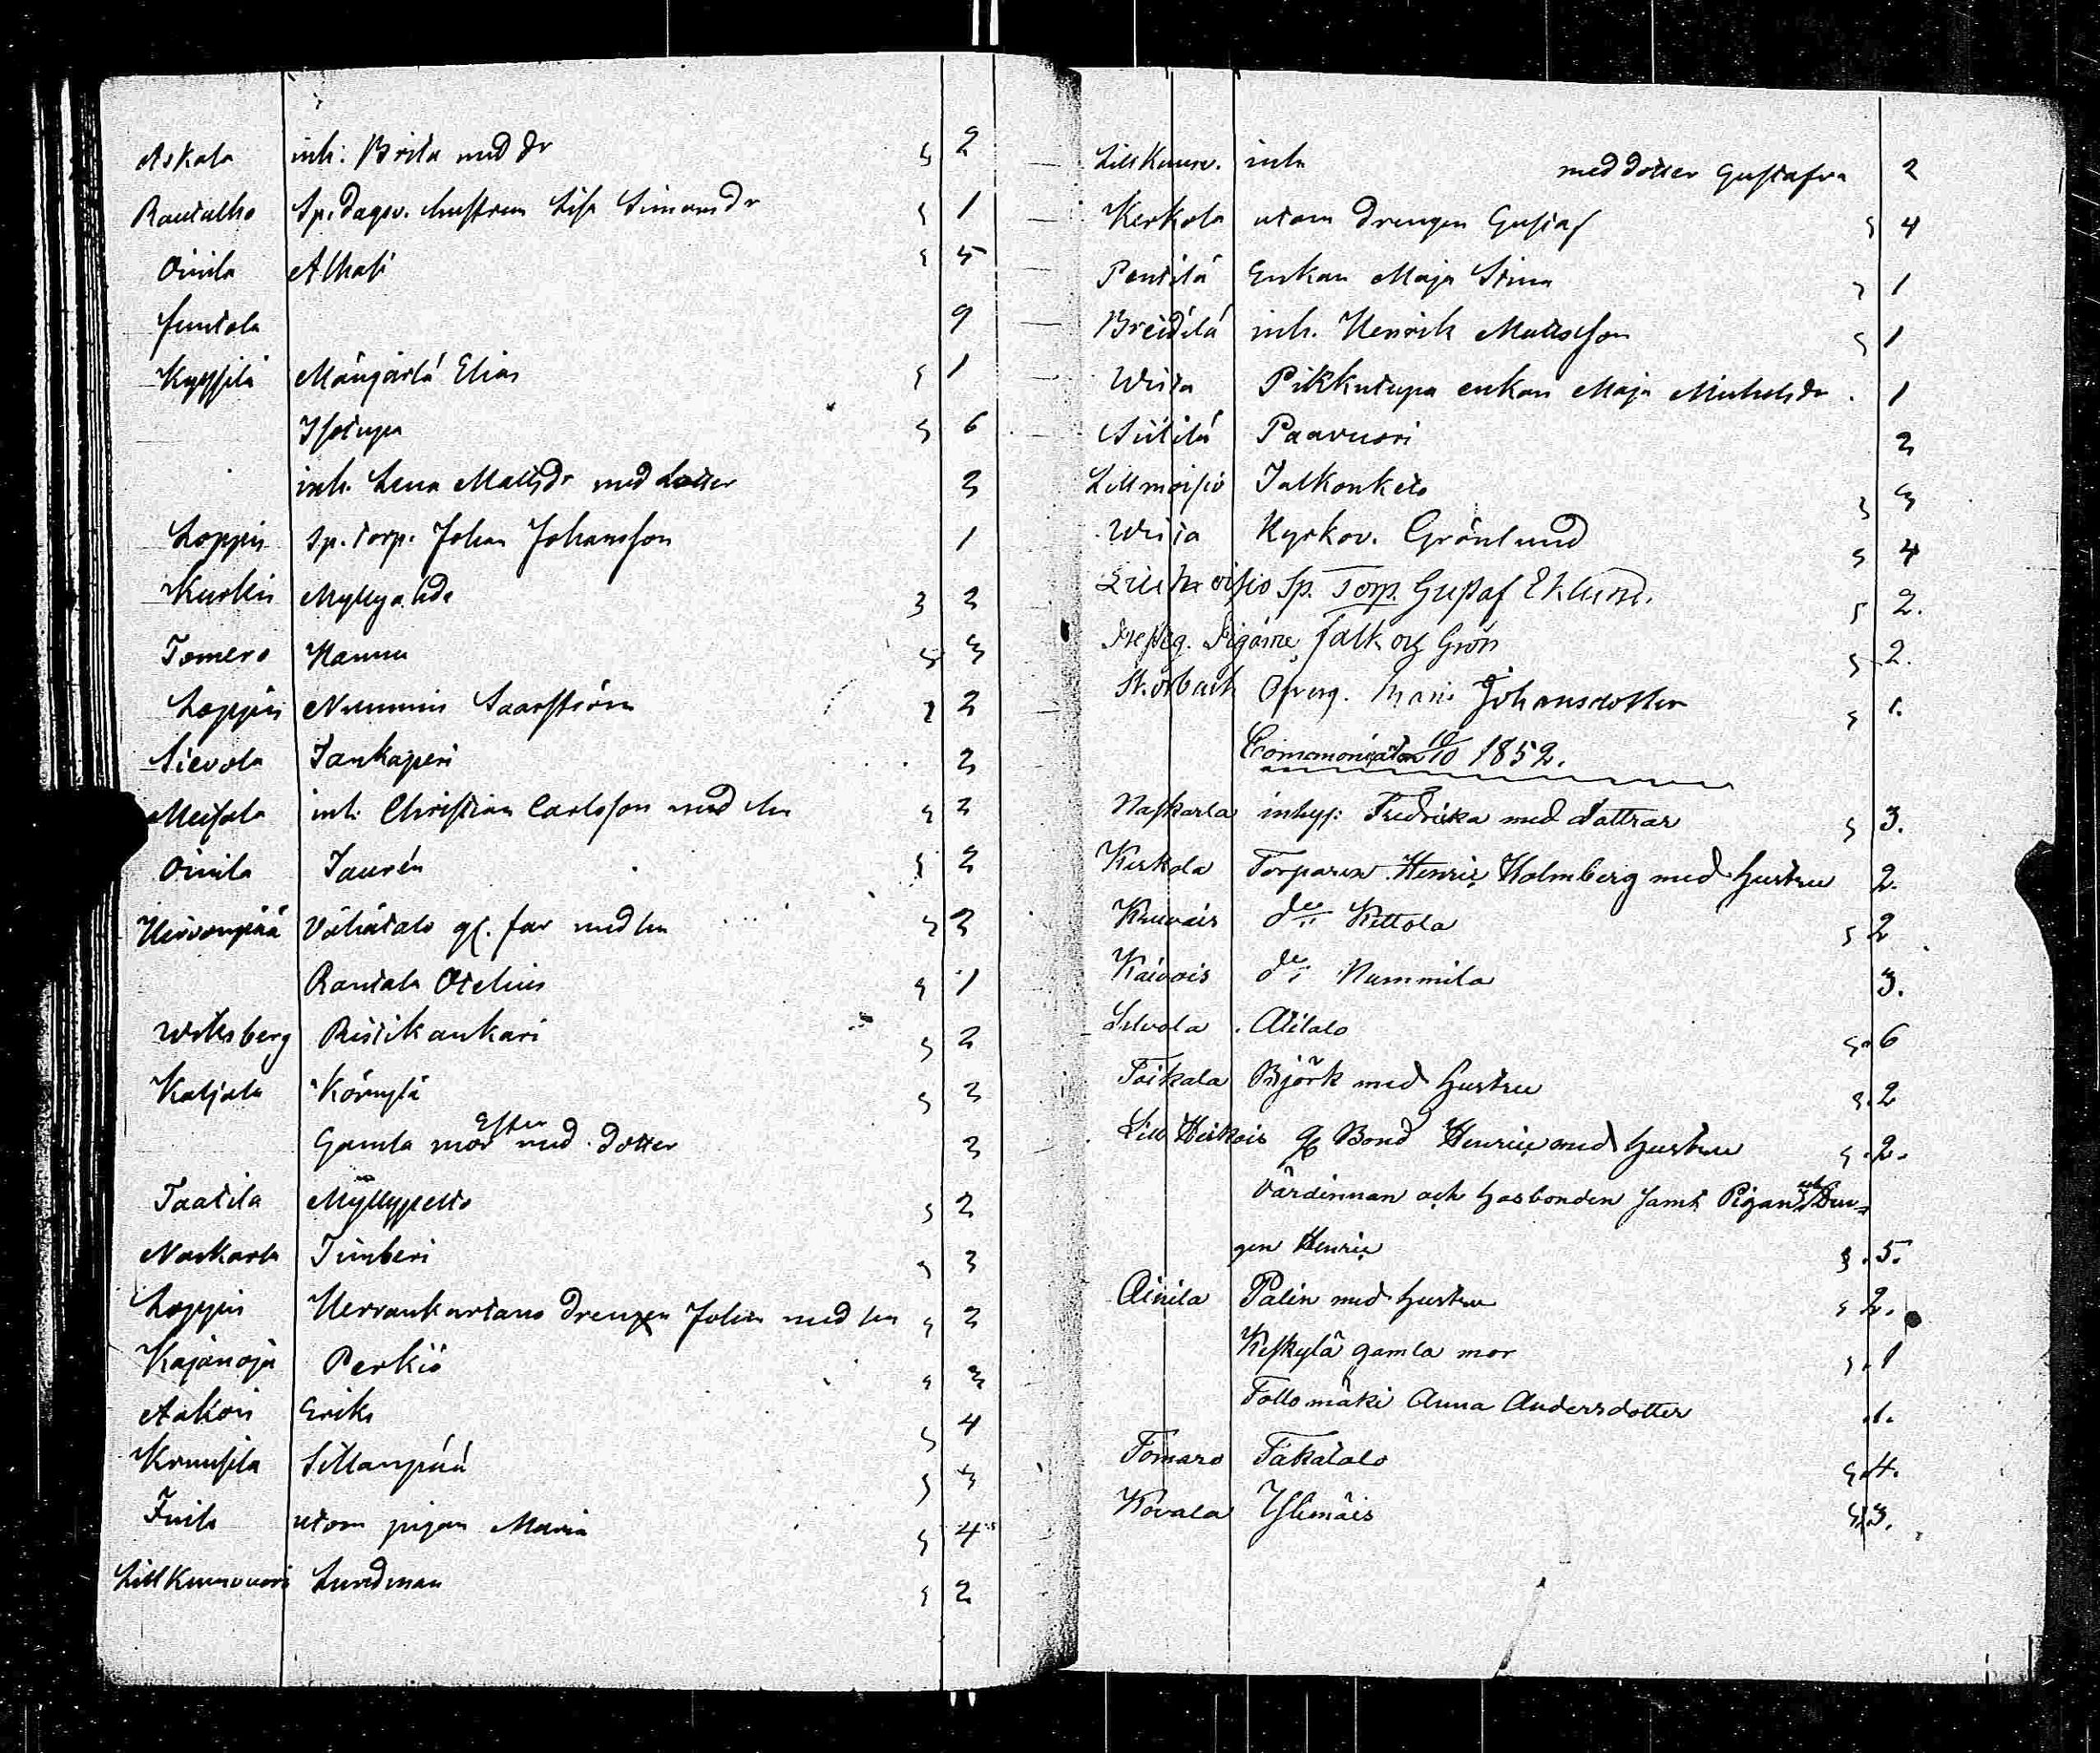 Askala inh: Brita med dr 2
Rautalho Sp. dagsv. hustrun Lisa Simonsdr 1
Oinila Alhati 5
Juntola 9
Kyyssilä Mängärlä Elias 1
Isotupa 6
inh. Lena Mattsdr med dotter 2
Loppis Sp. torp. Johan Johansson 1
Kurkis 3
Tomero Hannu 3
Loppis Nummis Saarström 2
Sievola Jankajeri 2
Meisala inh: Christian Carlsson med hu 2
Oinila Taurén 2
Hirvonpää Vähätalo gl. far med hu 2
Rantala Otelius 1
Wiksberg Ristikankari 2
Katjala Környlä 2
Gamla mor Ester med dotter 2
Taatila Myllypelto 2
Naskarla Timberi 3
Loppis Herrankartano drengen Johan med hu 2
Kajanoja Perkiö 3
Askois Eriks 4
Kruusila Sillanpää 3
Juila utom pigan Maria 4
Lill Kuusvuori Lundman 2
Lill Kuusv. inh med dotter Gustafva 2
Kerkola utom drengen Gustaf 4
Penttilä Enkan Maja Stina 1
Breidilä inh. Henrik Mattsson 1
Wista Pikkutupa enkan Maja Michelsdr 1
Siitilä Paavuori 2
Lillmoisio Jalkonketo 3
Wista Kyrkov. Grönlund 4
Sp. Torp. Gustaf Eklund. 2.
Falk och Grön 2.
St. örbach Maria Johansdotter 1.
10/10 1852.
Naskarla inhys: Fredrika med dottrar 3.
Kerkola Torparen Henric Holmberg med hustru 2.
Kuuvais do Kettola 2
Kaivois do Nummila 3.
Silvola Alitalo 6
Toikala Björk med hustru 2
Lill Heikois gl Bond Henric med hustru 2.
Värdinnan och hosbonden samt Pigan och Dren-
gen Henric 5.
Oinila Palin med hustru 2.
Keskylä gamla mor 1
Tollomäki Anna Andersdotter 1.
Tomaro Takatalo 4.
Kovala Yliknäis 3.